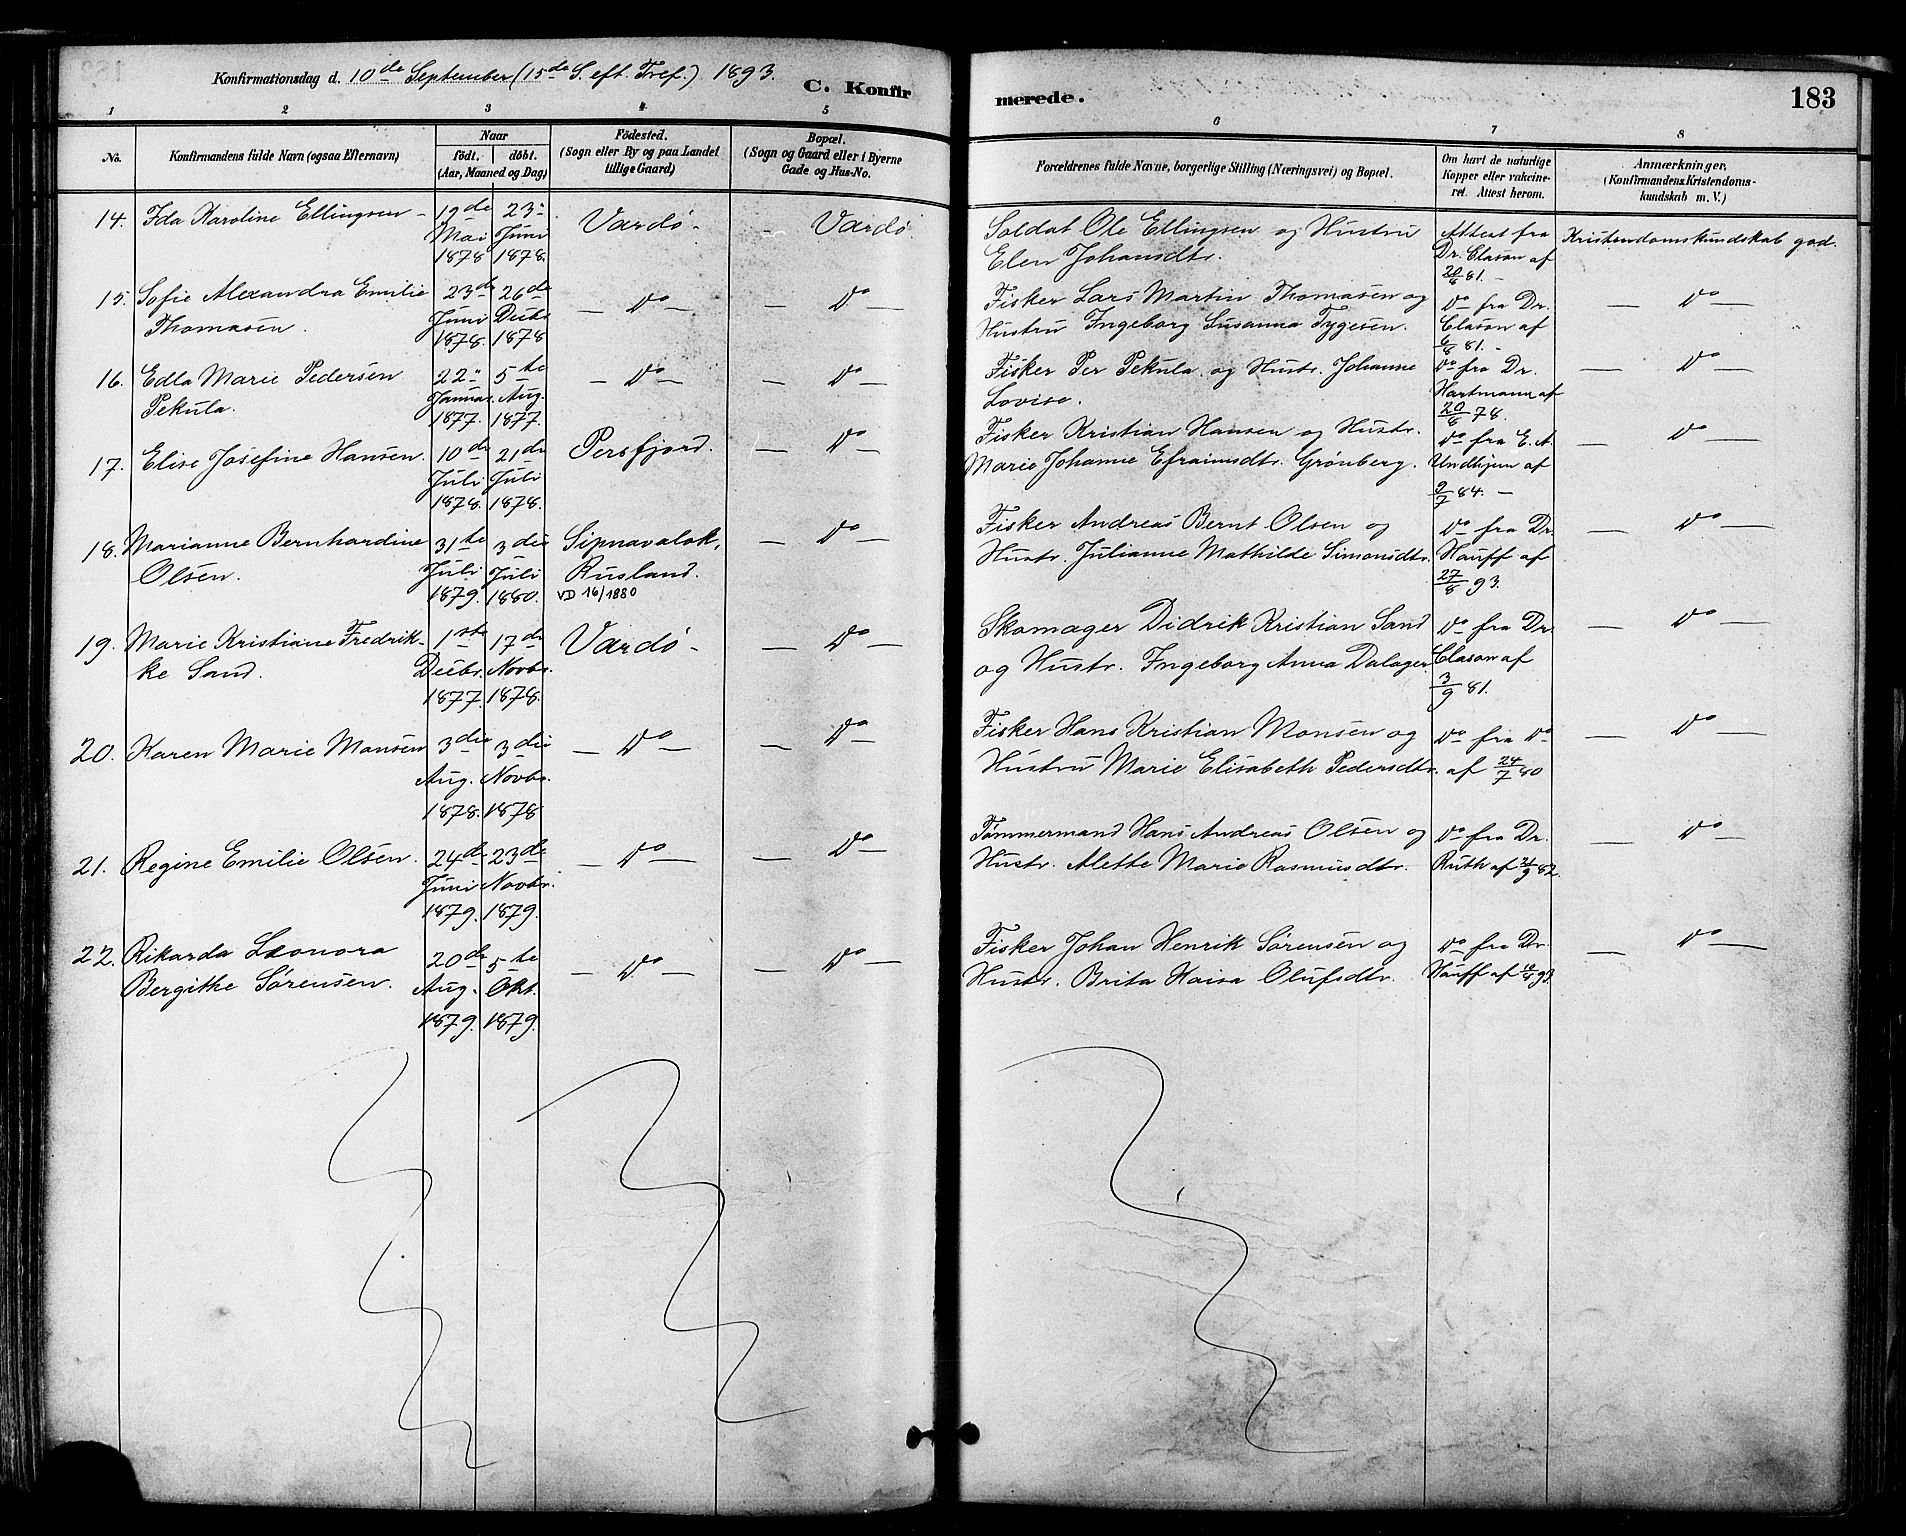 Konfirmationsdag d. 10de September (15de S. eft. Tref.) 1893.
C. Konfirmerede.
183
1 2 3 4 5 6 7 8
No.
Konfirmandens fulde Navn (ogsaa Efternavn)
Naar
födt. döbt.
(Aar, Maaned og Dag)
Födested.
(Sogn eller By og paa Landet
tillige Gaard)
Bopæl.
(Sogn og Gaard eller i Byerne
Gade og Hus-No.
Forældrenes fulde Navne, borgerlige Stilling (Næringsvei) og Bopæl.
Om havt de naturlige
Kopper eller vakcine-
ret. Attest herom.
Anmærkninger.
(Konfirmandens Kristendoms-
kundskab m. V.)
14. Ida Karoline Ellingsen - 19de Mai 1878 23- Juni 1878. Vardø - - Vardø
Soldat Ole Ellingsen og Hustru
Elen Johansdtr.
Attest fra
Dr. Clason af
20/8 81. -
Kristendomskundskab god.
15. Sofie Alexandra Emilie
Thomasen.
23de Juni 1878. 26de Decbr. 1878 - Do - - Do -
Fisker Lars Martin Thomasen og
Hustru Ingeborg Susanna Tygesen.
Do fra Dr.
Clason af
6/8 81. -
- Do -
16. Edla Marie Pedersen
Pekula.
22- Januar 1877. 5te Aug. 1877. - Do - - Do -
Fisker Per Pekula og Hustr. Johanne
Lovise.
Do fra Dr.
Hartmann af
20/8 78.
- Do -
17. Elise Josefine Hansen. 10de Juli 1878. 21de Juli 1878. Persfjord. - Do -
Fisker Kristian Hansen og Hustr.
Marie Johanne Efraimsdtr. Grønberg.
Do fra E. A.
Undhjem af
9/7 84. -
- Do -
18. Marianne Bernhardine
Olsen.
31te Juli 1879. 3die Juli 1880. Sipnavalok,
Rusland.
VD 16/1880
- Do -
Fisker Andreas Bernt Olsen og
Hustr. Julianne Mathilde Simonsdtr.
Do fra Dr.
Hauff af
27/8 93.
- Do -
19. Marie Kristiane Fredrik-
ke Sand.
1ste Decbr. 1877. 17de Novbr. 1878. Vardø - - Do -
Skomager Didrik Kristian Sand
og Hustr. Ingeborg Anna Dalager
Do fra Dr.
Clason af
3/9 81.
- Do -
20. Karen Marie Monsen 3die Aug. 1878. 3die Novbr. 1878 - Do - - Do -
Fisker Hans Kristian Monsen og
Hustru Marie Elisabeth Pedersdtr.
Do fra Do
af 24/7 80
- Do -
21. Regine Emilie Olsen. 24de Juni 1879. 23de Novbr. 1879. - Do - - Do -
Tømmermand Hans Andreas Olsen og
Hustr. Alette Marie Rasmusdtr.
Do fra Dr.
Ruth af 82.
- Do -
22. Rikarda Leonora
Bergithe Sørensen.
20de Aug. 1879. 5te Okt. 1879. - Do - - Do -
Fisker Johan Henrik Sørensen og
Hustr. Brita Kaisa Olufsdtr.
Do fra Dr.
Hauff af 93.
- Do -